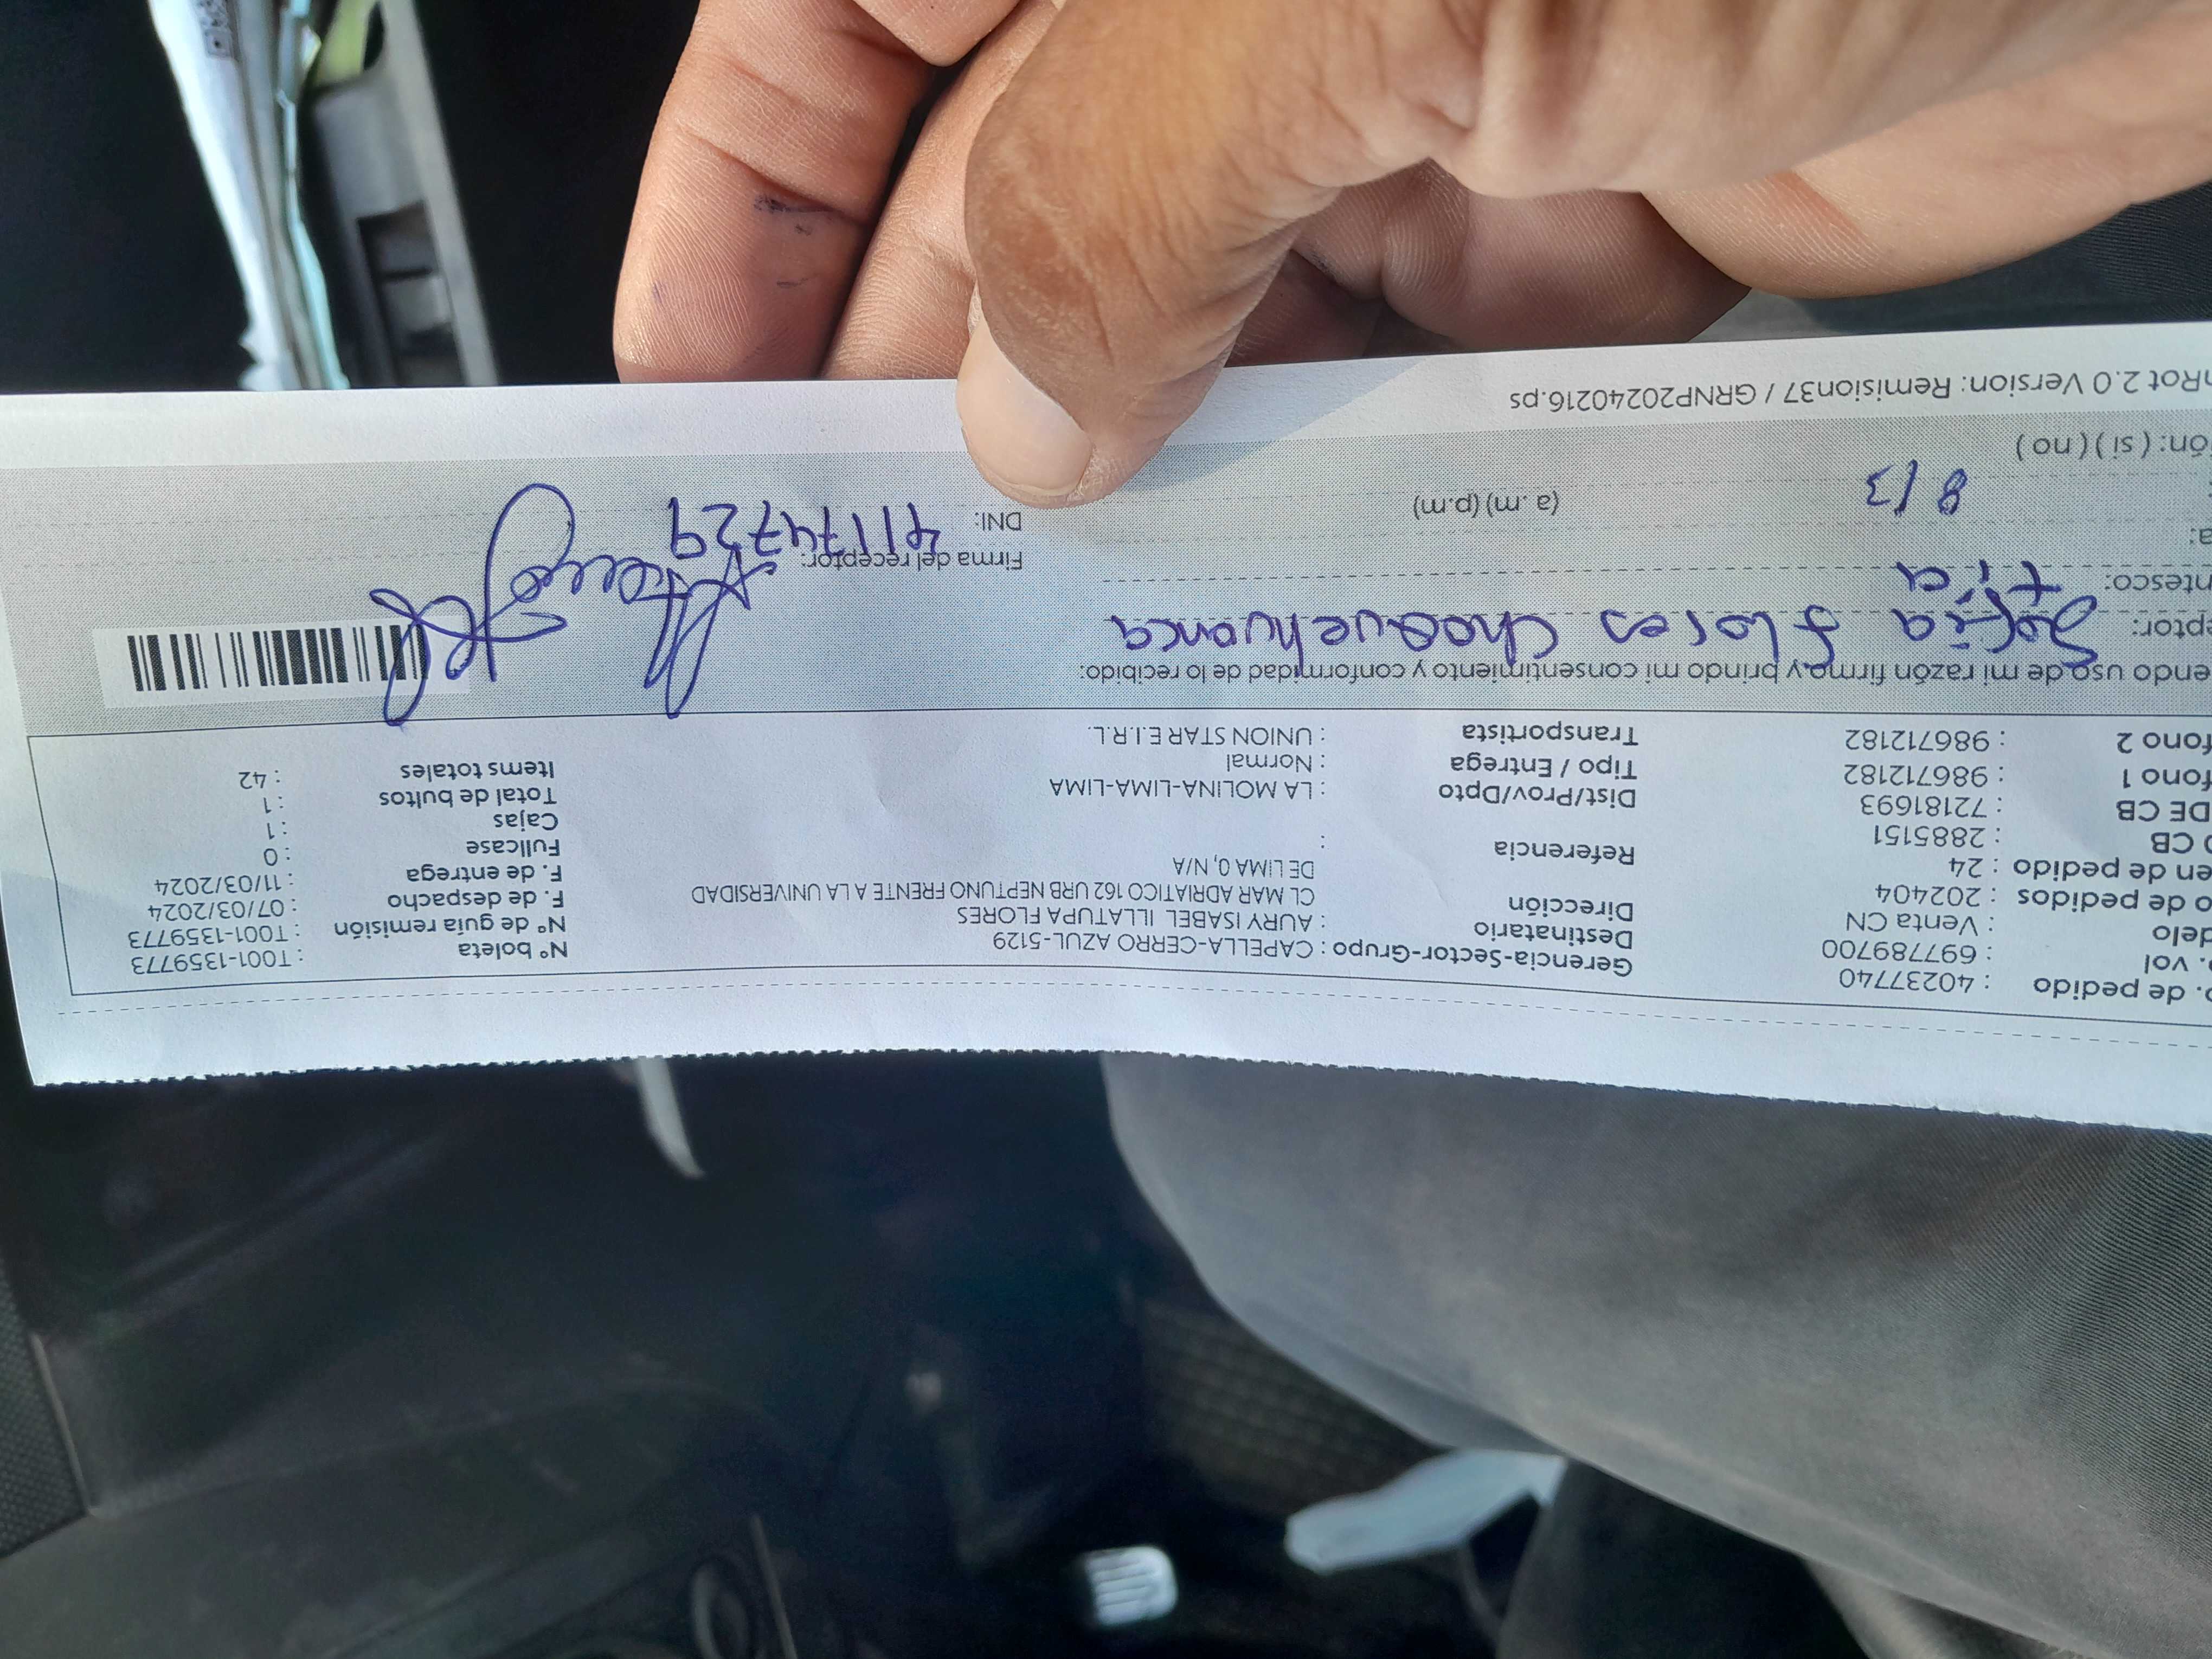 o. de pedido : 40237740 Gerencia-Sector-Grupo : CAPELLA-CERRO AZUL-5129 N° boleta : T001-1359773
. vol : 697789700 Destinatario : AURY ISABEL ILLATUPA FLORES N° de guía remisión : T001-1359773
delo : Venta CN Dirección CL MAR ADRIATICO 162 URB NEPTUNO FRENTE A LA UNIVERSIDAD F. de despacho : 07/03/2024
o de pedidos : 202404 DE LIMA 0, N/A F. de entrega : 11/03/2024
en de pedido : 24 Referencia : Fullcase : 0
O CB : 2885151 Cajas : 1
DE CB : 72181693 Dist/Prov/Dpto : LA MOLINA-LIMA-LIMA Total de bultos : 1
fono 1 : 986712182 Tipo / Entrega : Normal Items totales : 42
fono 2 : 986712182 Transportista : UNION STAR E.I.R.L.
endo uso de mi razón firmo y brindo mi consentimiento y conformidad de lo recibido:
eptor: Sofia Flores Choquehuanca
ntesco: tía Firma del receptor:
a: DNI: 41174729
8/3 (a. m) (p.m)
ón: ( si ) ( no )
nRot 2.0 Version: Remision37 / GRNP20240216.ps